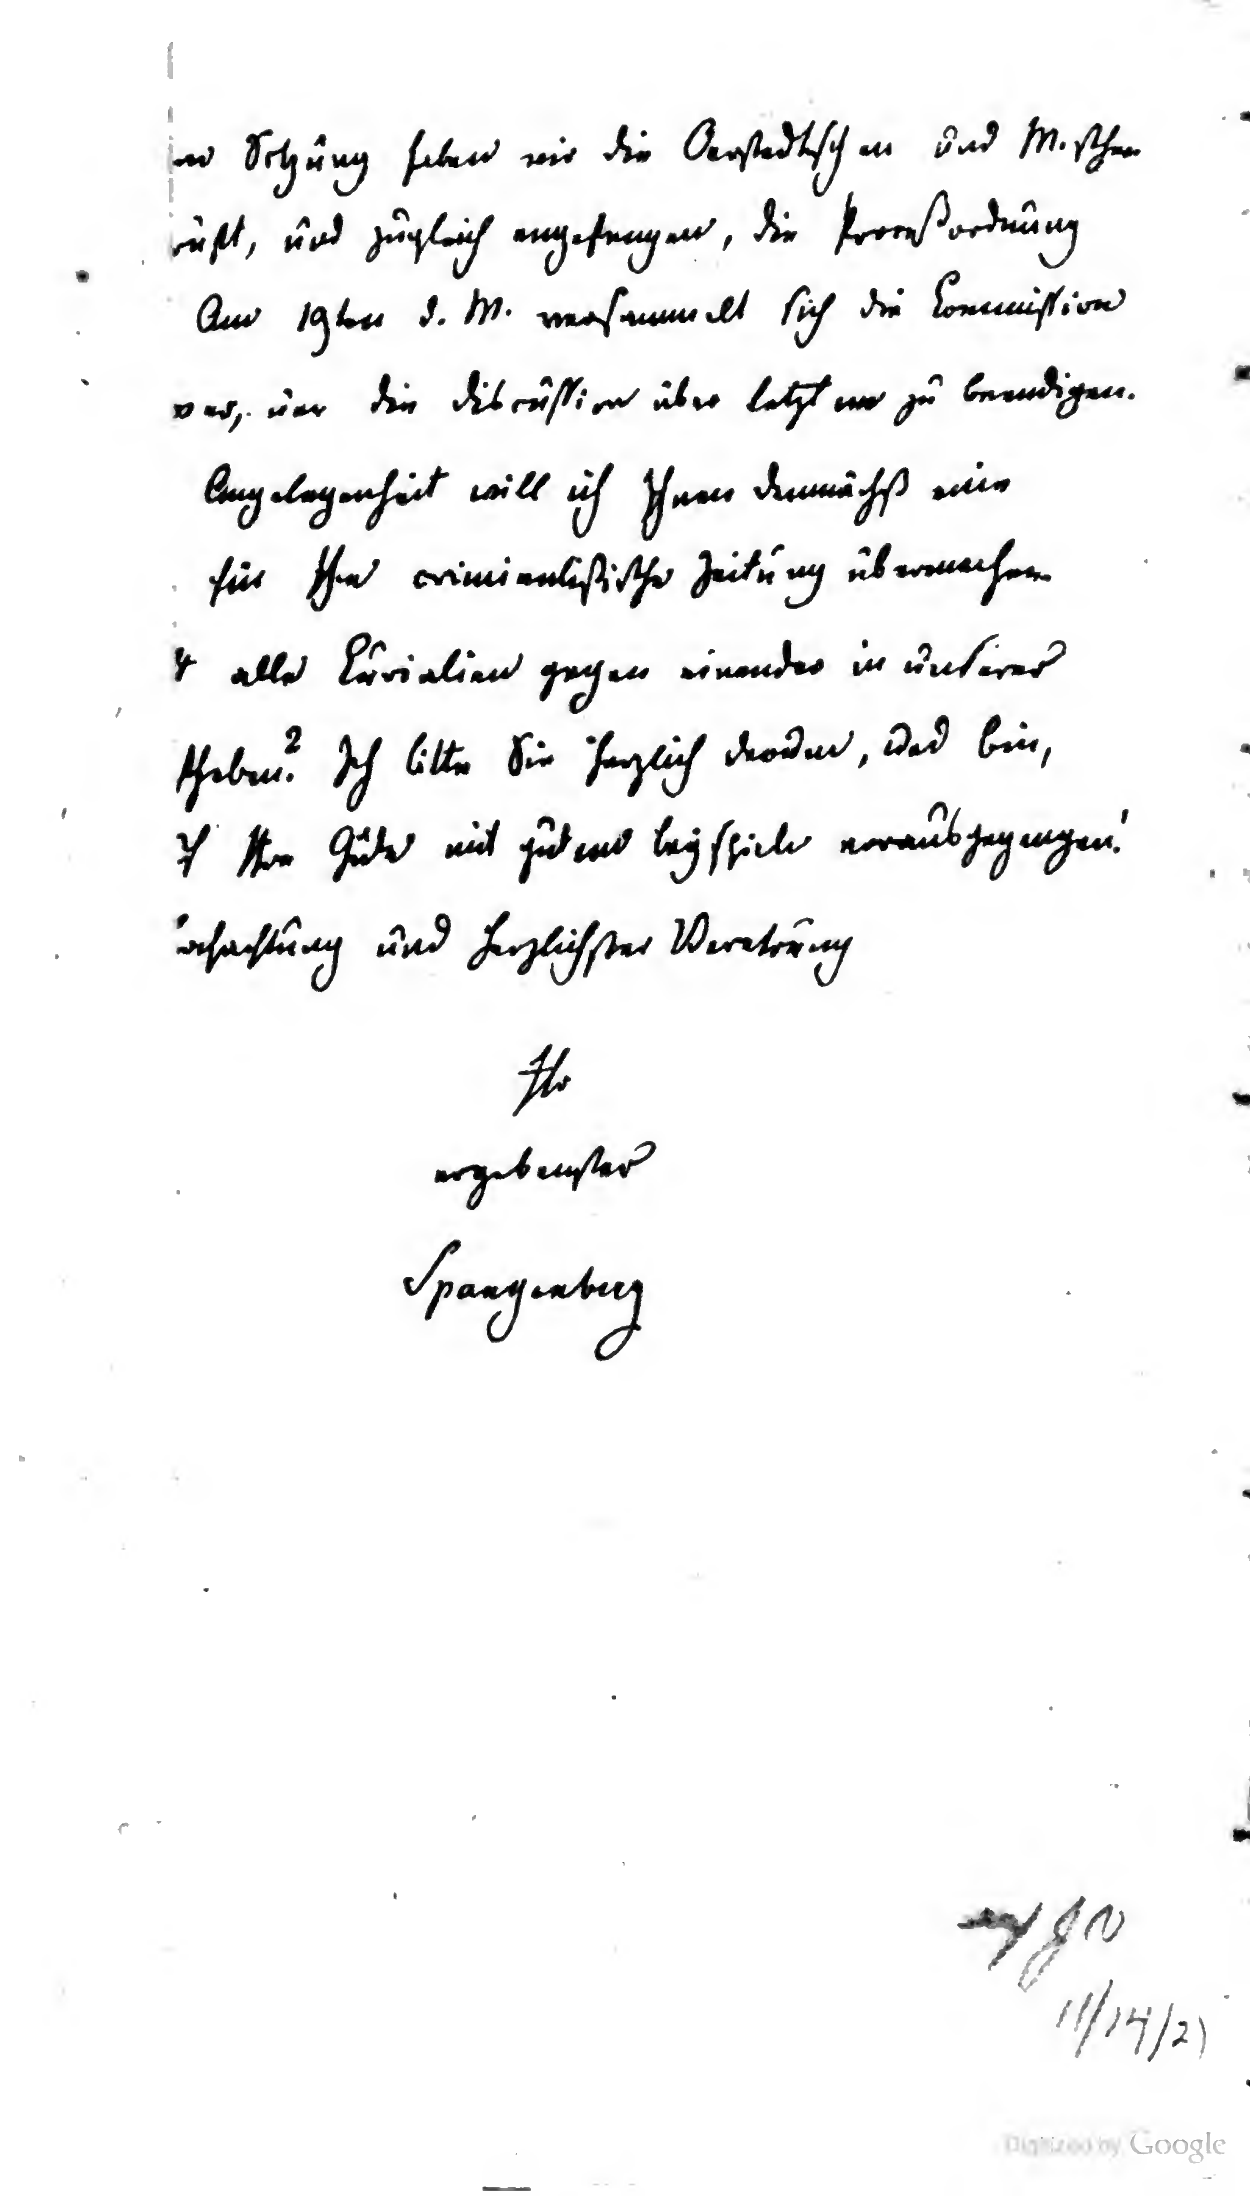 Sitzung haben wir die Oerstedtschen und M.schen
rüft, und zugleich angefangen, die Proceßordnung
Am 19ten d. M. versammelt sich die Commission
die Discussion über letztere zu beendigen.
Angelegenheit will ich Ihnen demnächst eine
für Ihre criminalistische Zeitung übermachen
alle Curialien gegen einander in unserer
Ich bitte Sie herzlich darum, und bin,
Ihre Güte mit gutem Beyspiele vorausgegangen!
ochachtung und herzlichster Verehrung
Ihr
ergebenster
Spangenberg
11/14/21
Digitized by Google